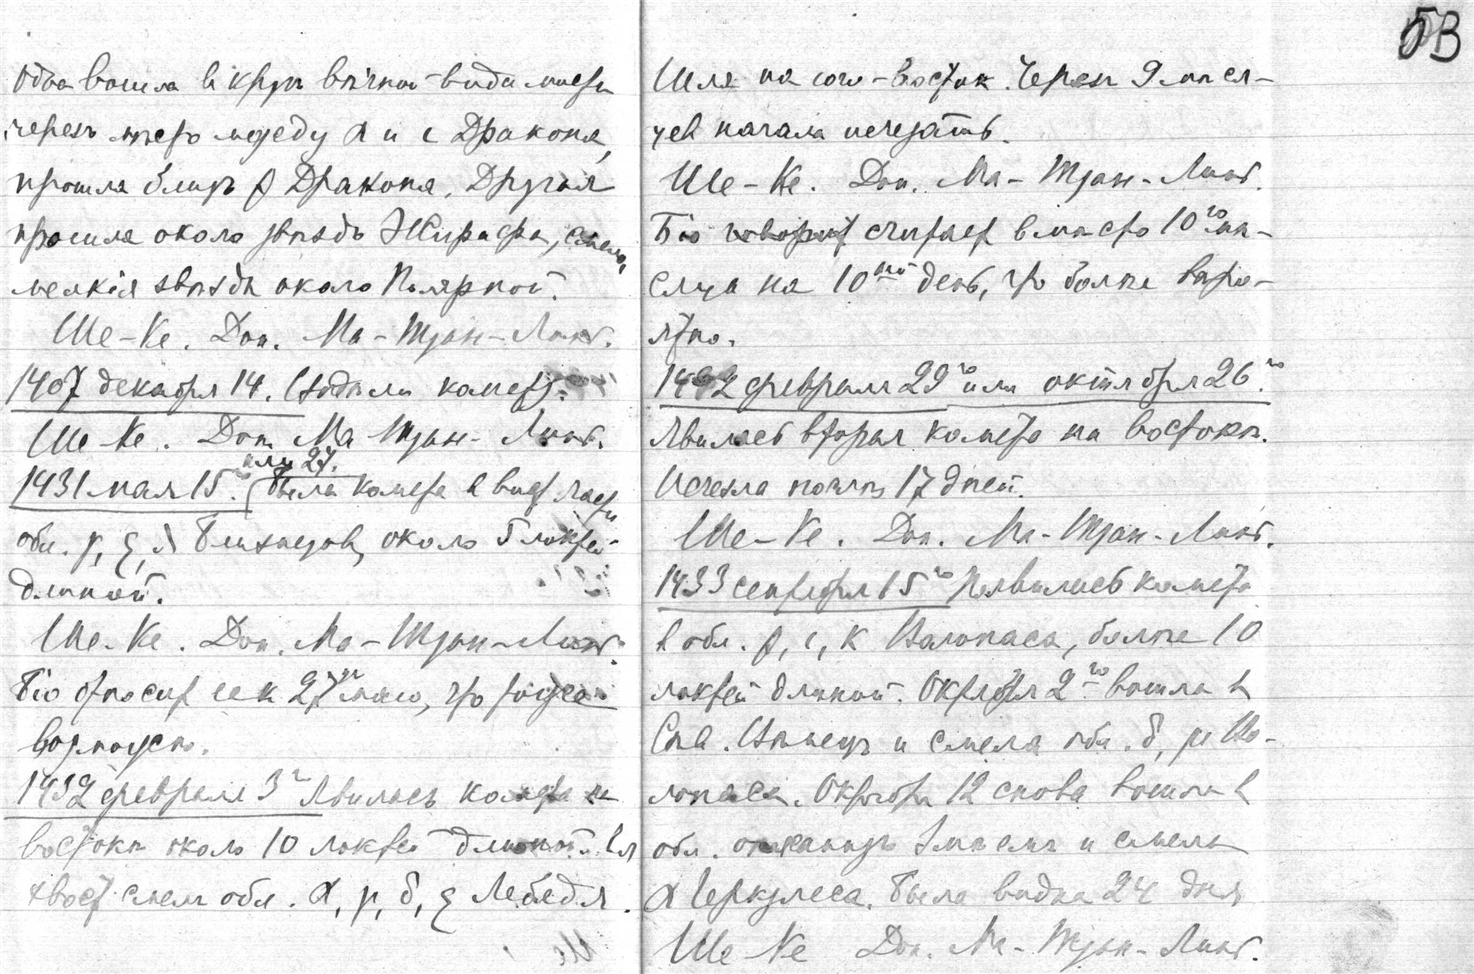 5В
Одна вошла в кругъ вѣчной видимости
черезъ место между α и ι Дракона,
прошла близъ β Дракона, Другая
прошла около звѣздъ Жирафа, смела
мелкія звѣзды около Полярной.
Ше-Ке. Доп. Ма-Тжан-Линъ.
1407 декабря 14. Видѣли комету.
Ше Ке. Доп. Ма Тжан-Линъ.
или 27.
1431 мая 15. Была комета в виде
обл. Близнецов, около 5 локтей
длиной.
Ше-Ке. Доп. Ма-Тжан-Линъ.
Біо относит ее к 27 мая, что
1432 февраля 3го Явилась комета на
востокѣ около 10 локтей длиной. Ея
хвост смел обл. α, γ, δ, Лебедя.
Шла на юго-восток. Через 9 мѣся-
цев начала исчезать.
Ше-Ке. Доп. Ма-Тжан-Линъ.
Біо считает вместо 10го мѣ-
сяца на 10ый день, что болѣе вѣро-
ятно.
1432 февраля 29го или октября 26го
Явилась вторая комета на востокѣ.
Исчезла почти 17 дней.
Ше-Ке. Доп. Ма-Тжан-Линъ.
1433 сентября 15го Появилась комета
в обл. β, ι, κ Волопаса, болѣе 10
локтей длиной. Октября 2го вошла в
Сѣв. Вѣнецъ и смела обл. δ, μ Во-
лопаса. Октября 12 снова вошла в
обл. и смела
α Геркулеса. Была видна 24 дня
Ше Ке Доп. Ма-Тжан-Линъ.